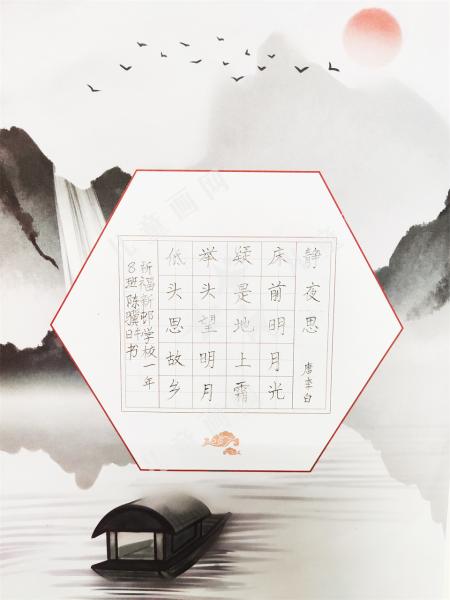 静夜思
唐李白
床前明月光
疑是地上霜
举头望明月
低头思故乡
祈福新邨学校一年
8班陈骥旿书